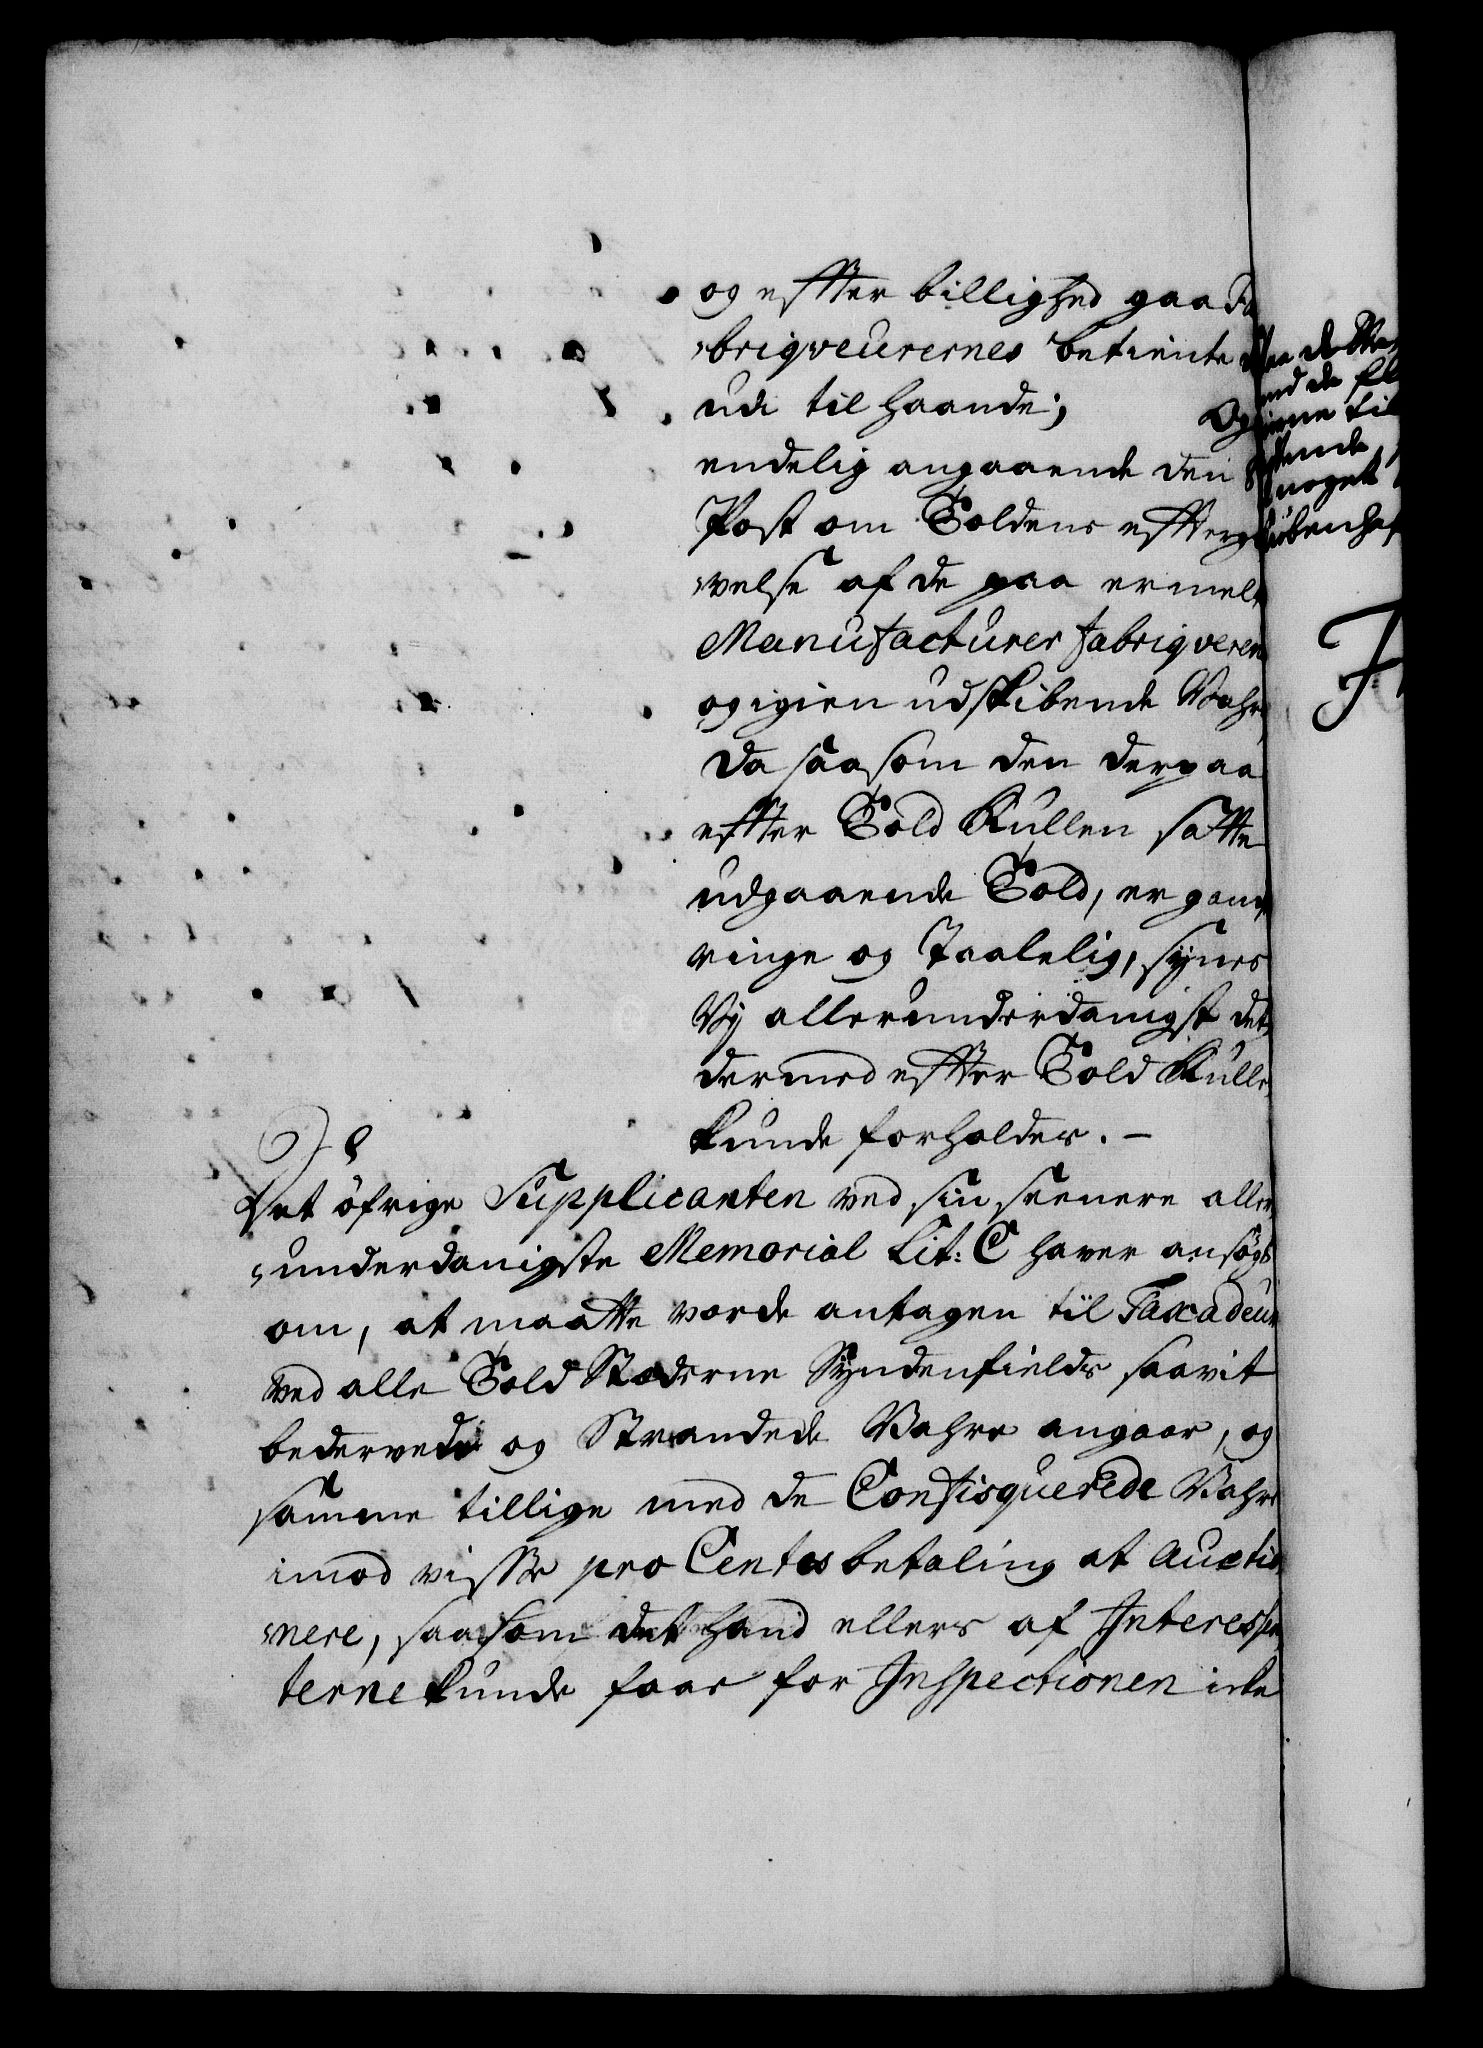 og efftter billighed gaa Fa
briqveurernes betiente 
udi til haande; Og
endelig angaaende den
Post om Toldens efftergi
velse af de paa ermelte
Manufacturer fabriqveren
og igien udskibende Vahre
Da saasom den derpaa
efftter Told Rullen satte
udgaaende Told, er gandske
ringe og Taalelig, synes
Vj allerunderdanigst det
dermed efftter Told Rulle
kunde forholdes. –
Det öfrige Supplicanten ved sin seenere aller
underdanigste Memorial Lit: C haver ansögt
om, at maatte vorde antagen til Taxadeur
ved alle Told Stæderne Syndenfields saavit
bedervede og Strandede Vahre angaar, og
samme tillige med de Confisquerede Vahre
imod visse pro Centos betaling at Auctio
nere, saasom det hand ellers af Interessen
terne kunde faae for Inspectionen icke